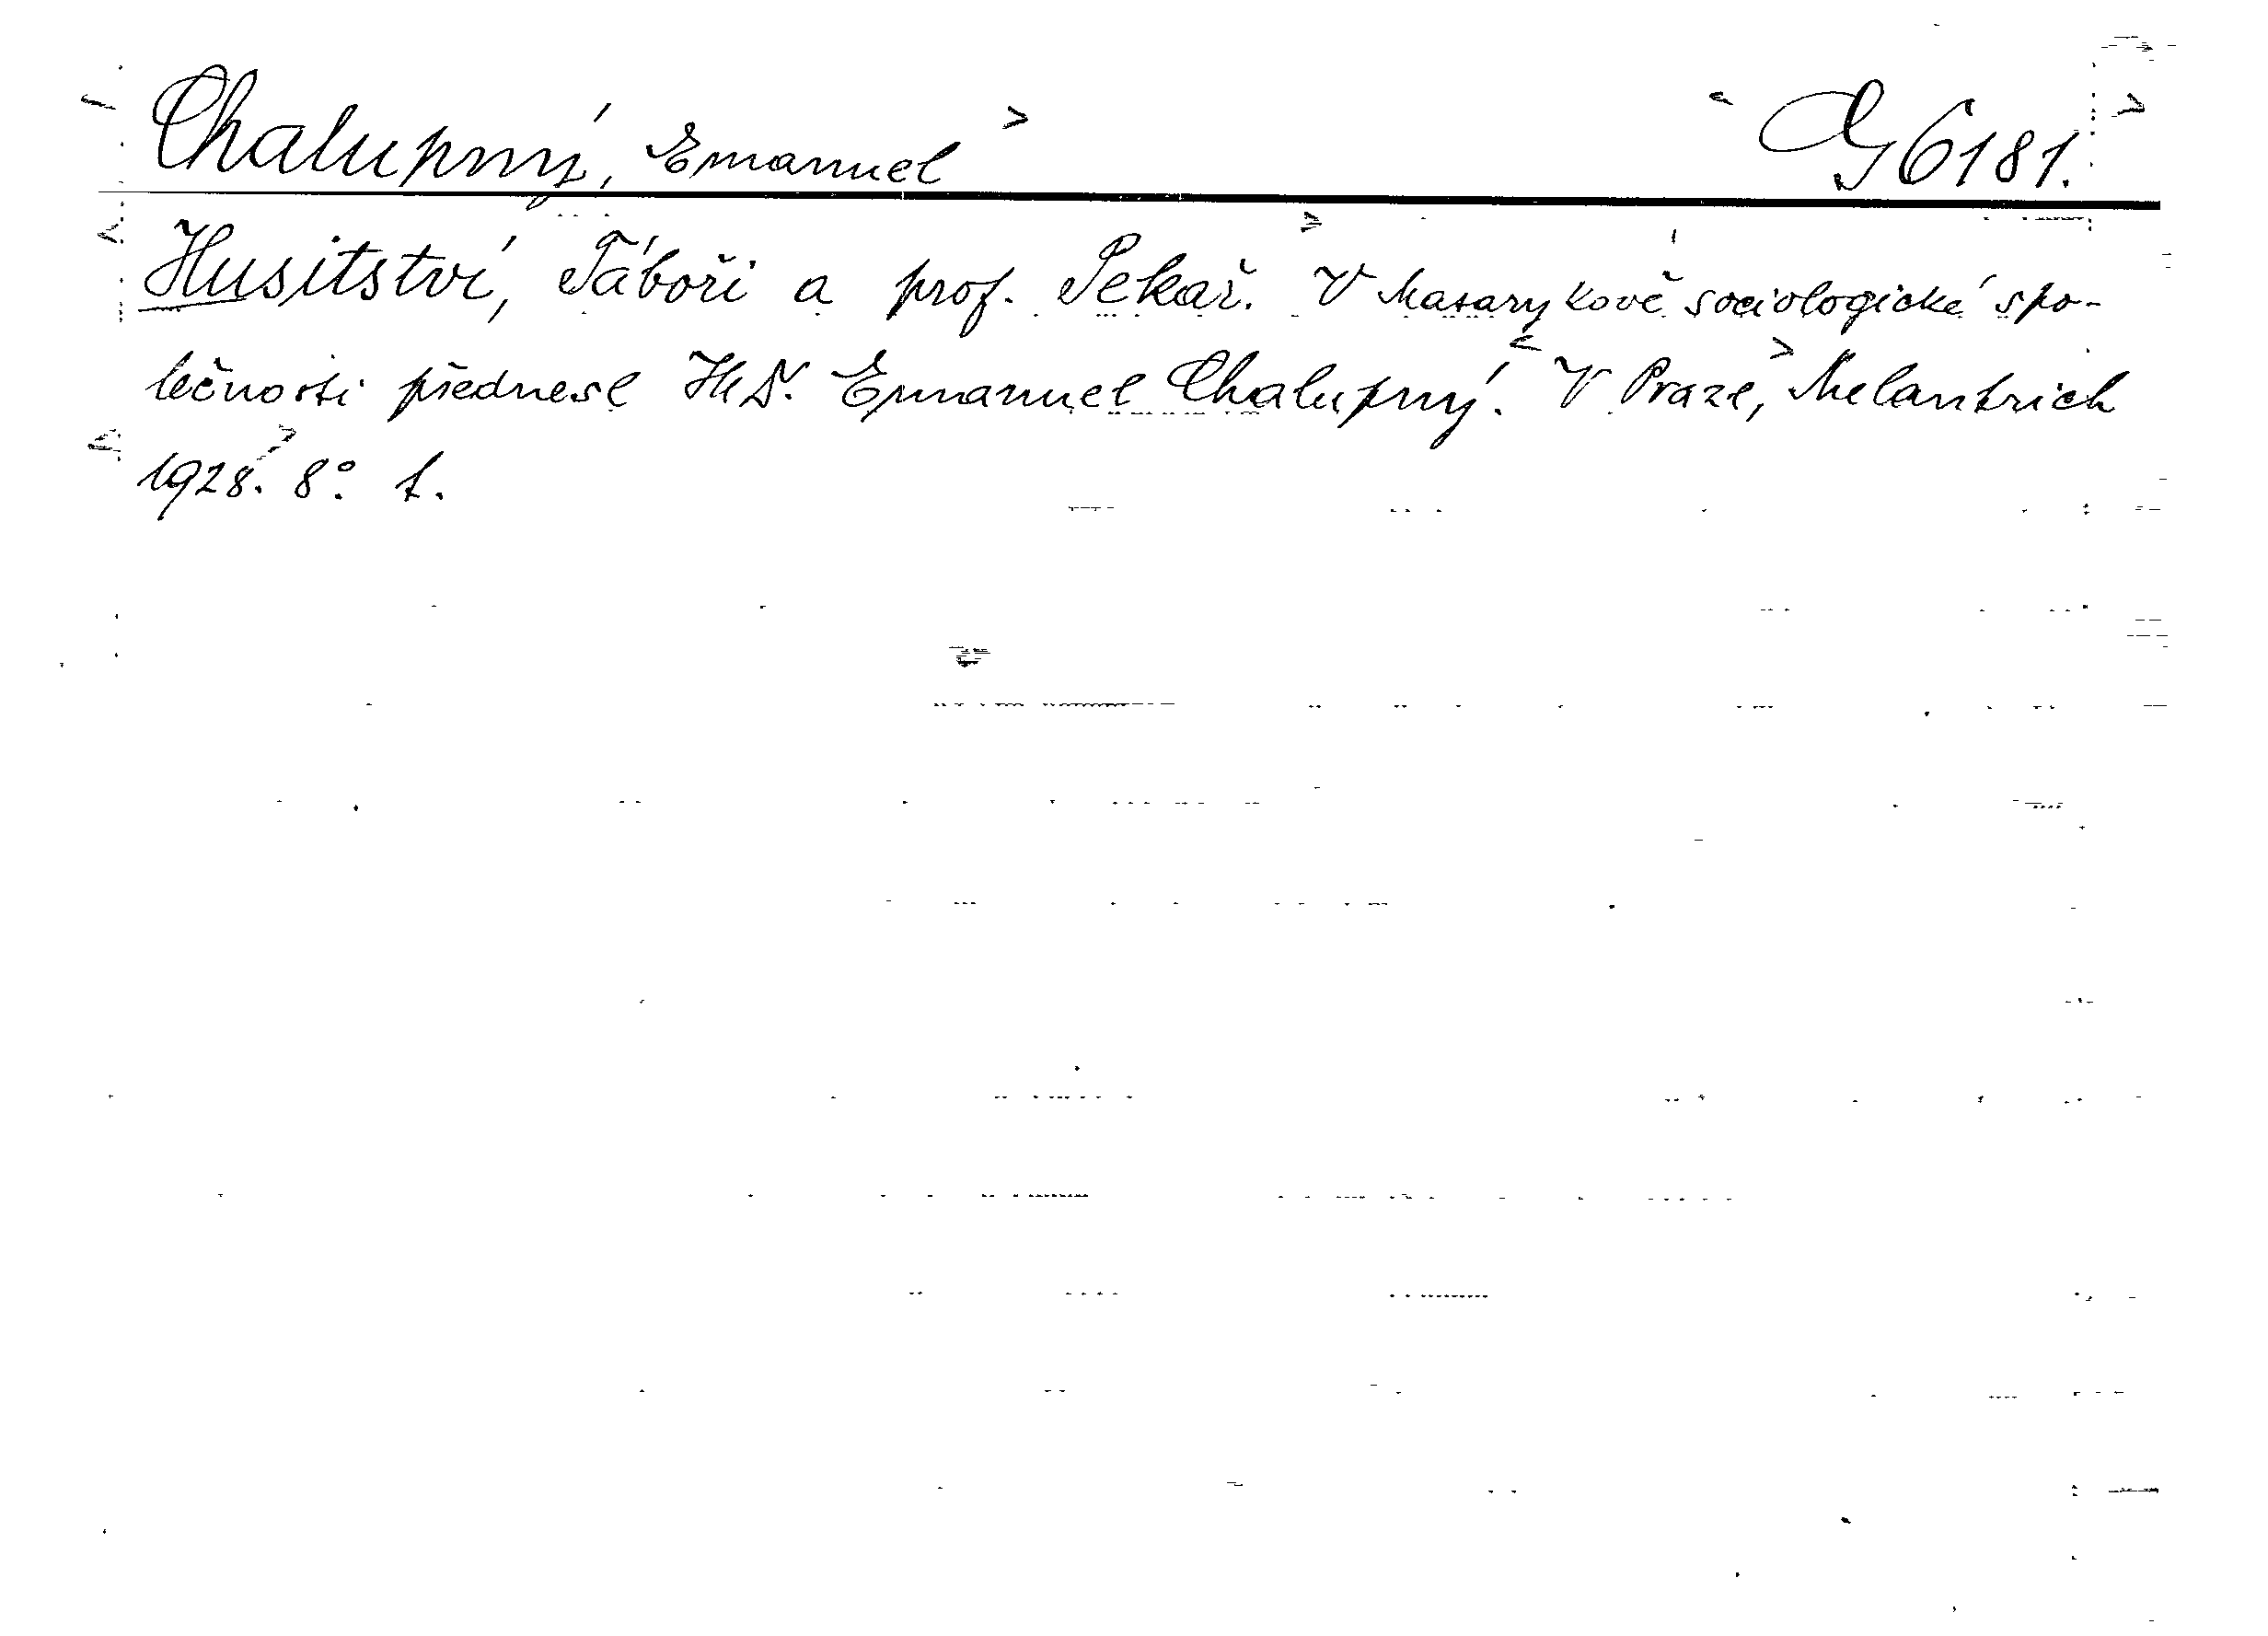 Chalupný, Emanuel G 6181.
Husitství, Táboři a prof. Pekař. V Masarykově sociologické spo-
lečnosti přednesl Emanuel Chalupný. V Praze, Melantrich
1928. 8°.